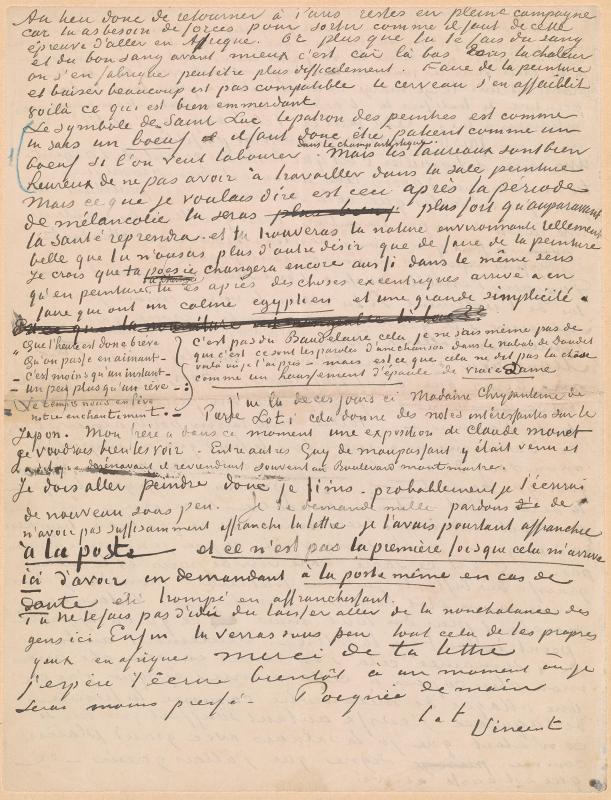 Au lieu donc de retourner à Paris restes en pleine campagne
car tu as besoin de forces pour sortir comme il faut de cette
épreuve d'aller en Afrique. Or plus que tu te fais du sang
et du bon sang avant mieux c'est car là bas dans la chaleur
on s'en fabrique peutêtre plus difficilement. Faire de la peinture
et baiser beaucoup est pas compatible le cerveau s'en affaiblit
voilà ce qui est bien emmerdant
Le symbole de Saint Luc le patron des peintres est comme
tu sais un boeuf il faut donc être patient comme un
boeuf si l'on veut labourer dans le champ artistique. Mais les taureaux sont bien
heureux de ne pas avoir à travailler dans la sale peinture
Mais ce que je voulais dire est ceci après la période
de mélancolie tu seras plus fort qu'auparavant
ta santé reprendra – et tu trouveras la nature environnante tellement
belle que tu n'auras plus d'autre désir que de faire de la peinture
Je crois que ta poesie changera encore aussi dans le même sens
qu'en peinture, tu es après des choses excentriques arrivé à en
faire qui ont un calme egyptien et une grande simplicité.
"Que l'heure est donc brève
Qu'on passe en aimant –
– c'est moins qu'un instant –
– un peu plus qu'un rêve –
Le temps nous enlève
notre enchantement. –
c'est pas du Baudelaire cela je ne sais même pas de
qui c'est ce sont les paroles d'une chanson dans le nabab de Daudet
voilà où je l'ai pris – mais est ce que cela ne dit pas la chose
comme un haussement d'épaule de vraie Dame
J'ai lu de ces jours ci Madame Chrysanteme de
Pierre Loti, cela donne des notes intéressantes sur le
Japon. Mon frère a dans ce moment une exposition de Claude Monet
je voudrais bien les voir. Entre autres Guy de Maupassant y était venu et
a dit que dorénavant il reviendrait souvent au Boulevard Montmartre.
Je dois aller peindre donc je finis – probablement je t'écrirai
de nouveau sous peu. Je te demande mille pardons de
n'avoir pas suffisamment affranchi la lettre je l'avais pourtant affranchie
à la poste et ce n'est pas la première fois que cela m'arrive
ici d'avoir en demandant à la poste même en cas de
doute été trompé en affranchissant.
Tu ne te fais pas d'idée du laisser aller de la nonchalance des
gens ici Enfin tu verras sous peu tout cela de tes propres
yeux en afrique merci de ta lettre
j'espère t'écrire bientôt à un moment où je
serai moins pressé – Poignée de main
t. à t.
Vincent